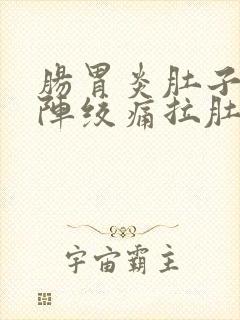 腸胃炎肚子
陣絞痛拉肚
宇宙霸主